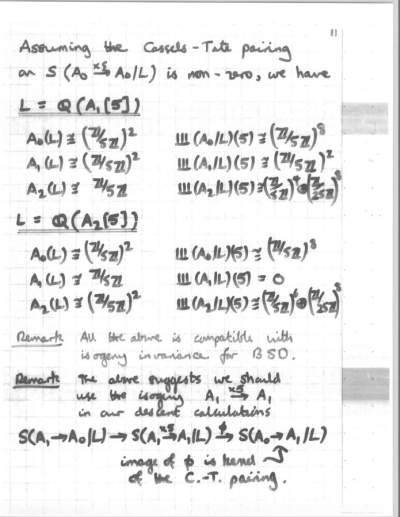 11
Assuming the Cassels-Tate pairing
on S(A₀ →^{×5} A₀/L) is non-zero, we have
L = Q(A₁[5])
A₀(L) ≅ (ℤ/5ℤ)² Ш(A₀/L)(5) ≅ (ℤ/5ℤ)⁸
A₁(L) ≅ (ℤ/5ℤ)² Ш(A₁/L)(5) ≅ (ℤ/5ℤ)²
A₂(L) ≅ ℤ/5ℤ Ш(A₂/L)(5) ≅ (ℤ/5ℤ)⁴ ⊕ (ℤ/25ℤ)⁸
L = Q(A₂[5])
A₀(L) ≅ (ℤ/5ℤ)² Ш(A₀/L)(5) ≅ (ℤ/5ℤ)⁸
A₁(L) ≅ ℤ/5ℤ Ш(A₁/L)(5) = 0
A₂(L) ≅ (ℤ/5ℤ)² Ш(A₂/L)(5) ≅ (ℤ/5ℤ)⁶ ⊕ (ℤ/25ℤ)⁸
Remark All the above is compatible with
isogeny invariance for BSD.
Remark The above suggests we should
use the isogeny A₁ →^{×5} A₁
in our descent calculations
S(A₁ → A₀/L) → S(A₁ →^{×5} A₁/L) →^{ϕ} S(A₀ → A₁/L)
image of ϕ is kernel
of the C.-T. pairing.